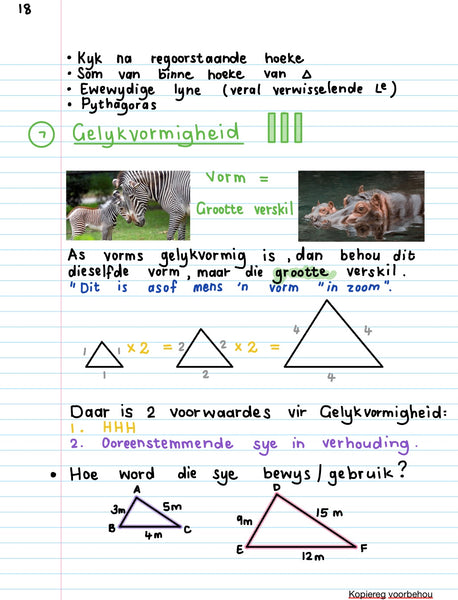 18
• Kyk na regoorstaande hoeke
• Som van binne hoeke van Δ
• Ewewydige lyne (veral verwisselende Le)
• Pythagoras
7 Gelykvormigheid |||
Vorm =
Grootte verskil
As vorms gelykvormig is, dan behou dit
dieselfde vorm, maar die grootte verskil.
"Dit is asof mens 'n vorm "in zoom".
1 1 × 2 = 2 2 × 2 = 4 4
1 2 4
Daar is 2 voorwaardes vir Gelykvormigheid:
1. HHH
2. Ooreenstemmende sye in verhouding.
• Hoe word die sye bewys/gebruik?
A D
3m 5m 9m 15m
B C
4m
E F
12m
Kopiereg voorbehou